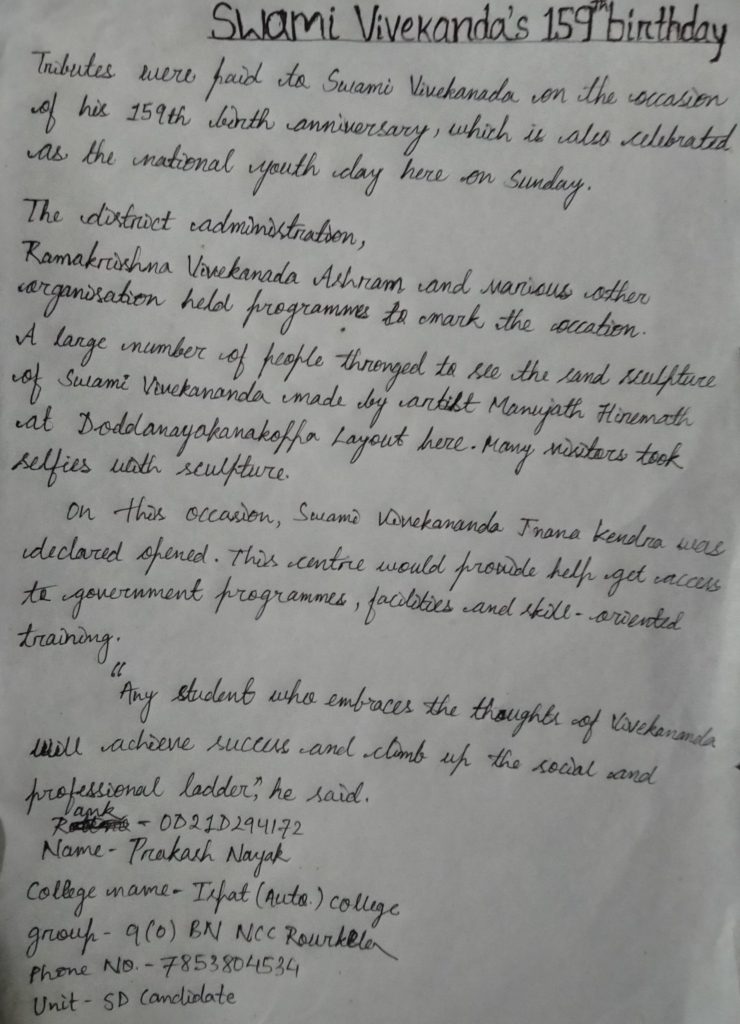 Swami Vivekanda's 159th birthday
Tributes were paid to Swami Vivekanada on the occasion
of his 159th birth anniversary, which is also celebrated
as the national youth day here on Sunday.
The district administration,
Ramakrishna Vivekanada Ashram and various other
organisation held programmes to mark the occation.
A large number of people thronged to see the sand sculpture
of Swami Vivekananda made by artist Manujath Hiremath
at Doddanayakanakoppa Layout here. Many visitors took
selfies with sculpture.
On this occasion, Swami Vivekananda Jnana kendra was
declared opened. This centre would provide help get access
to government programmes, facilities and skill-oriented
training.
"Any student who embraces the thoughts of Vivekananda
will achieve success and climb up the social and
professional ladder", he said.
Rank - OD21D294172
Name- Prakash Nayak
College name- Ispat (Auto.) college
group- 9(O) BN NCC Rourkela
Phone No. - 7853804534
Unit - SD Candidate